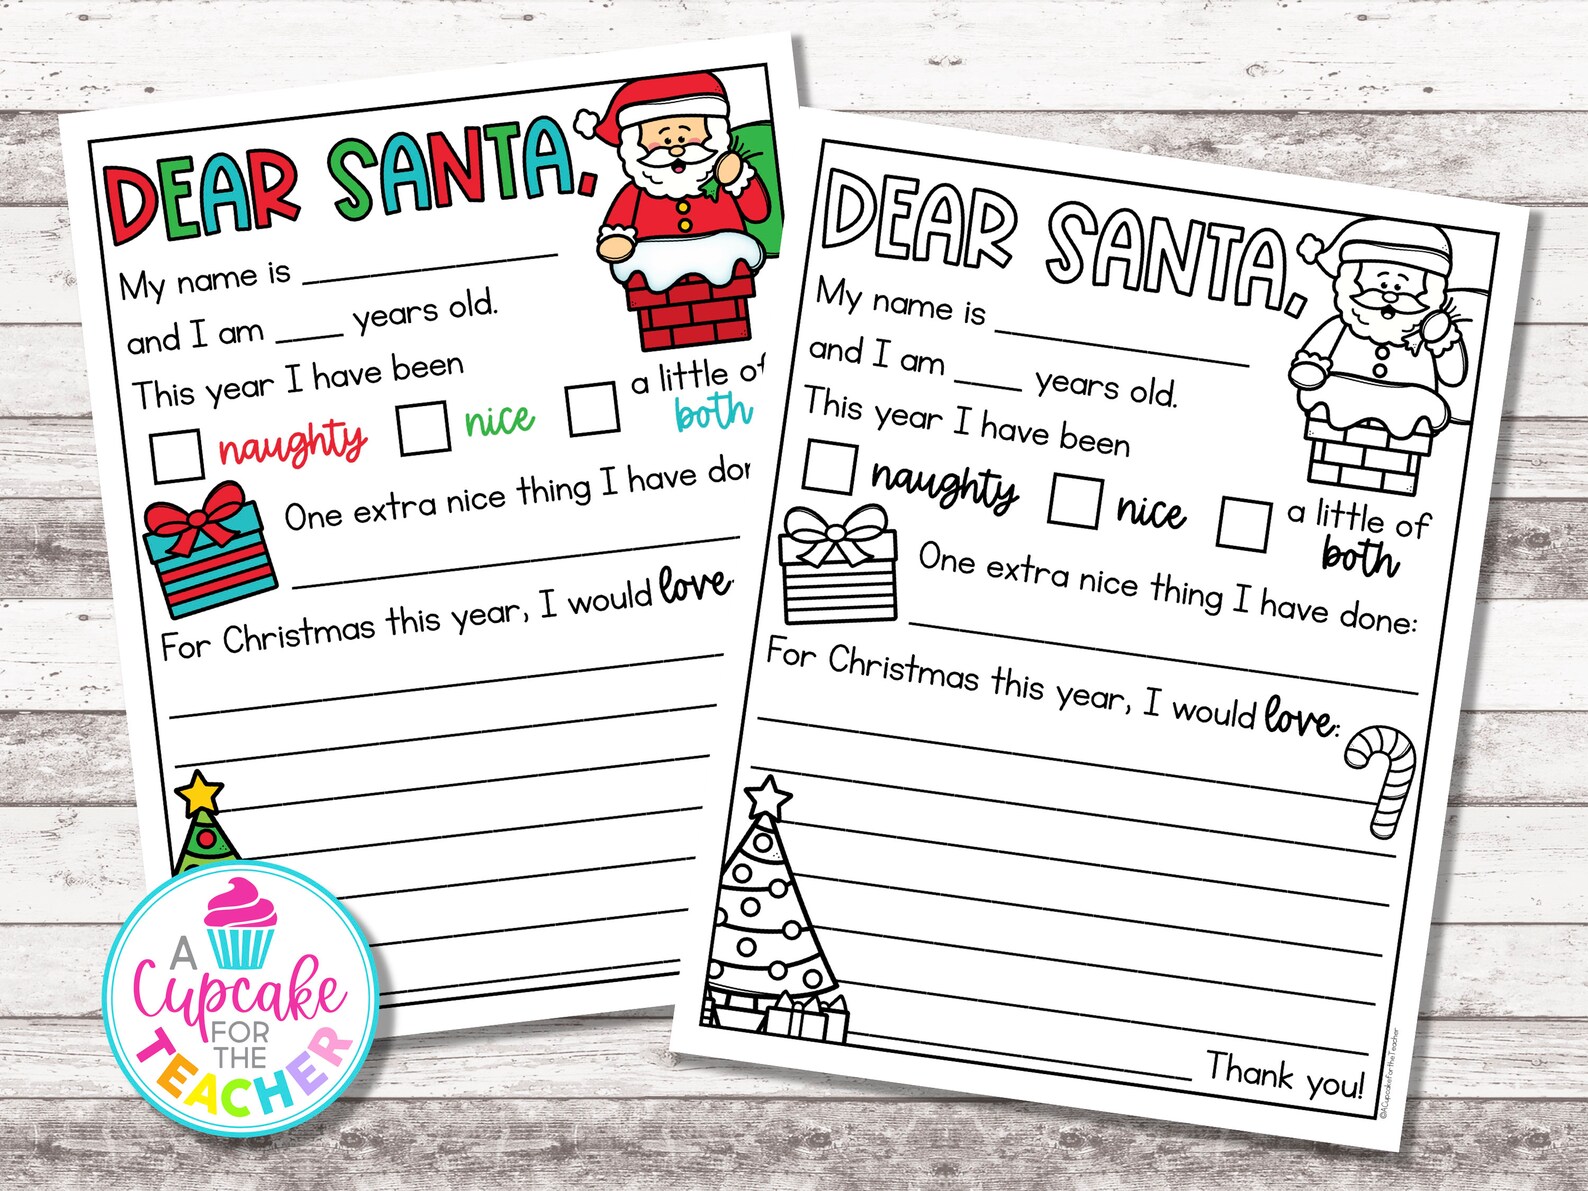 DEAR SANTA,
My name is
and I am ____ years old.
This year I have been
naughty nice a little of
both
One extra nice thing I have don
For Christmas this year, I would love
DEAR SANTA,
My name is
and I am ____ years old.
This year I have been
naughty nice a little of
both
One extra nice thing I have done:
For Christmas this year, I would love:
Thank you!
©ACupcakefortheTeacher
A
Cupcake
FOR
THE
TEACHER